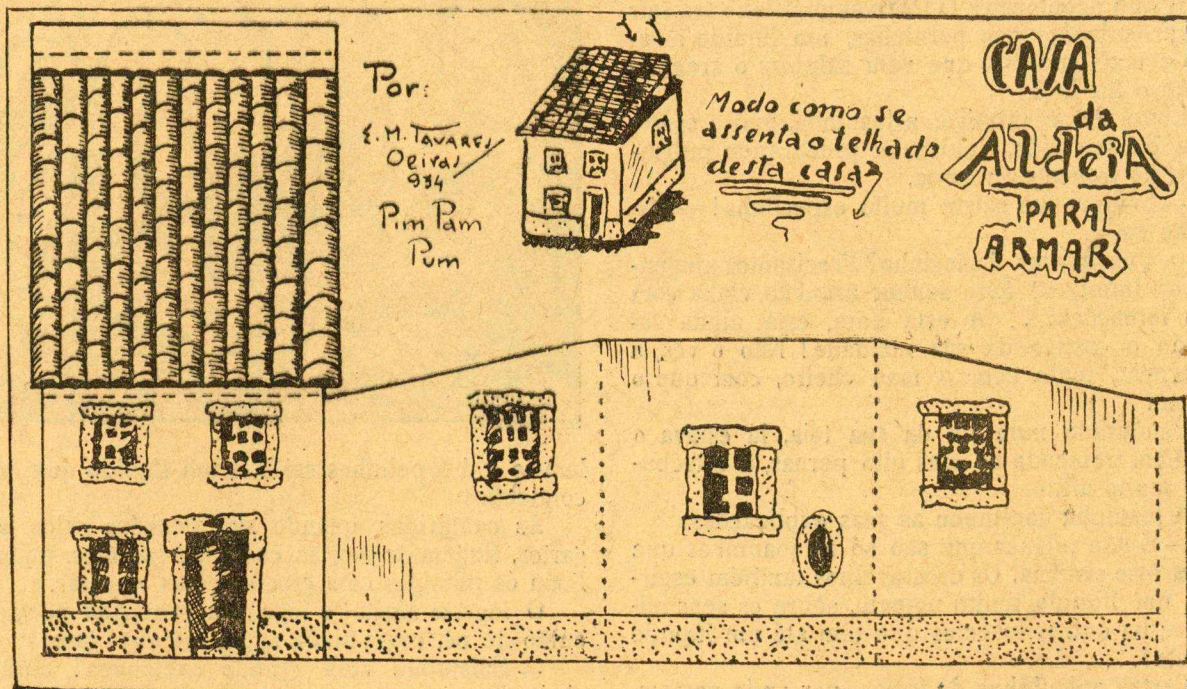 Por:
E. M. TAVARES
Oeiras
934
Pim Pam
Pum
Modo como se
assenta o telhado
desta casa
CASA
da
AldeiA
PARA
ARMAR